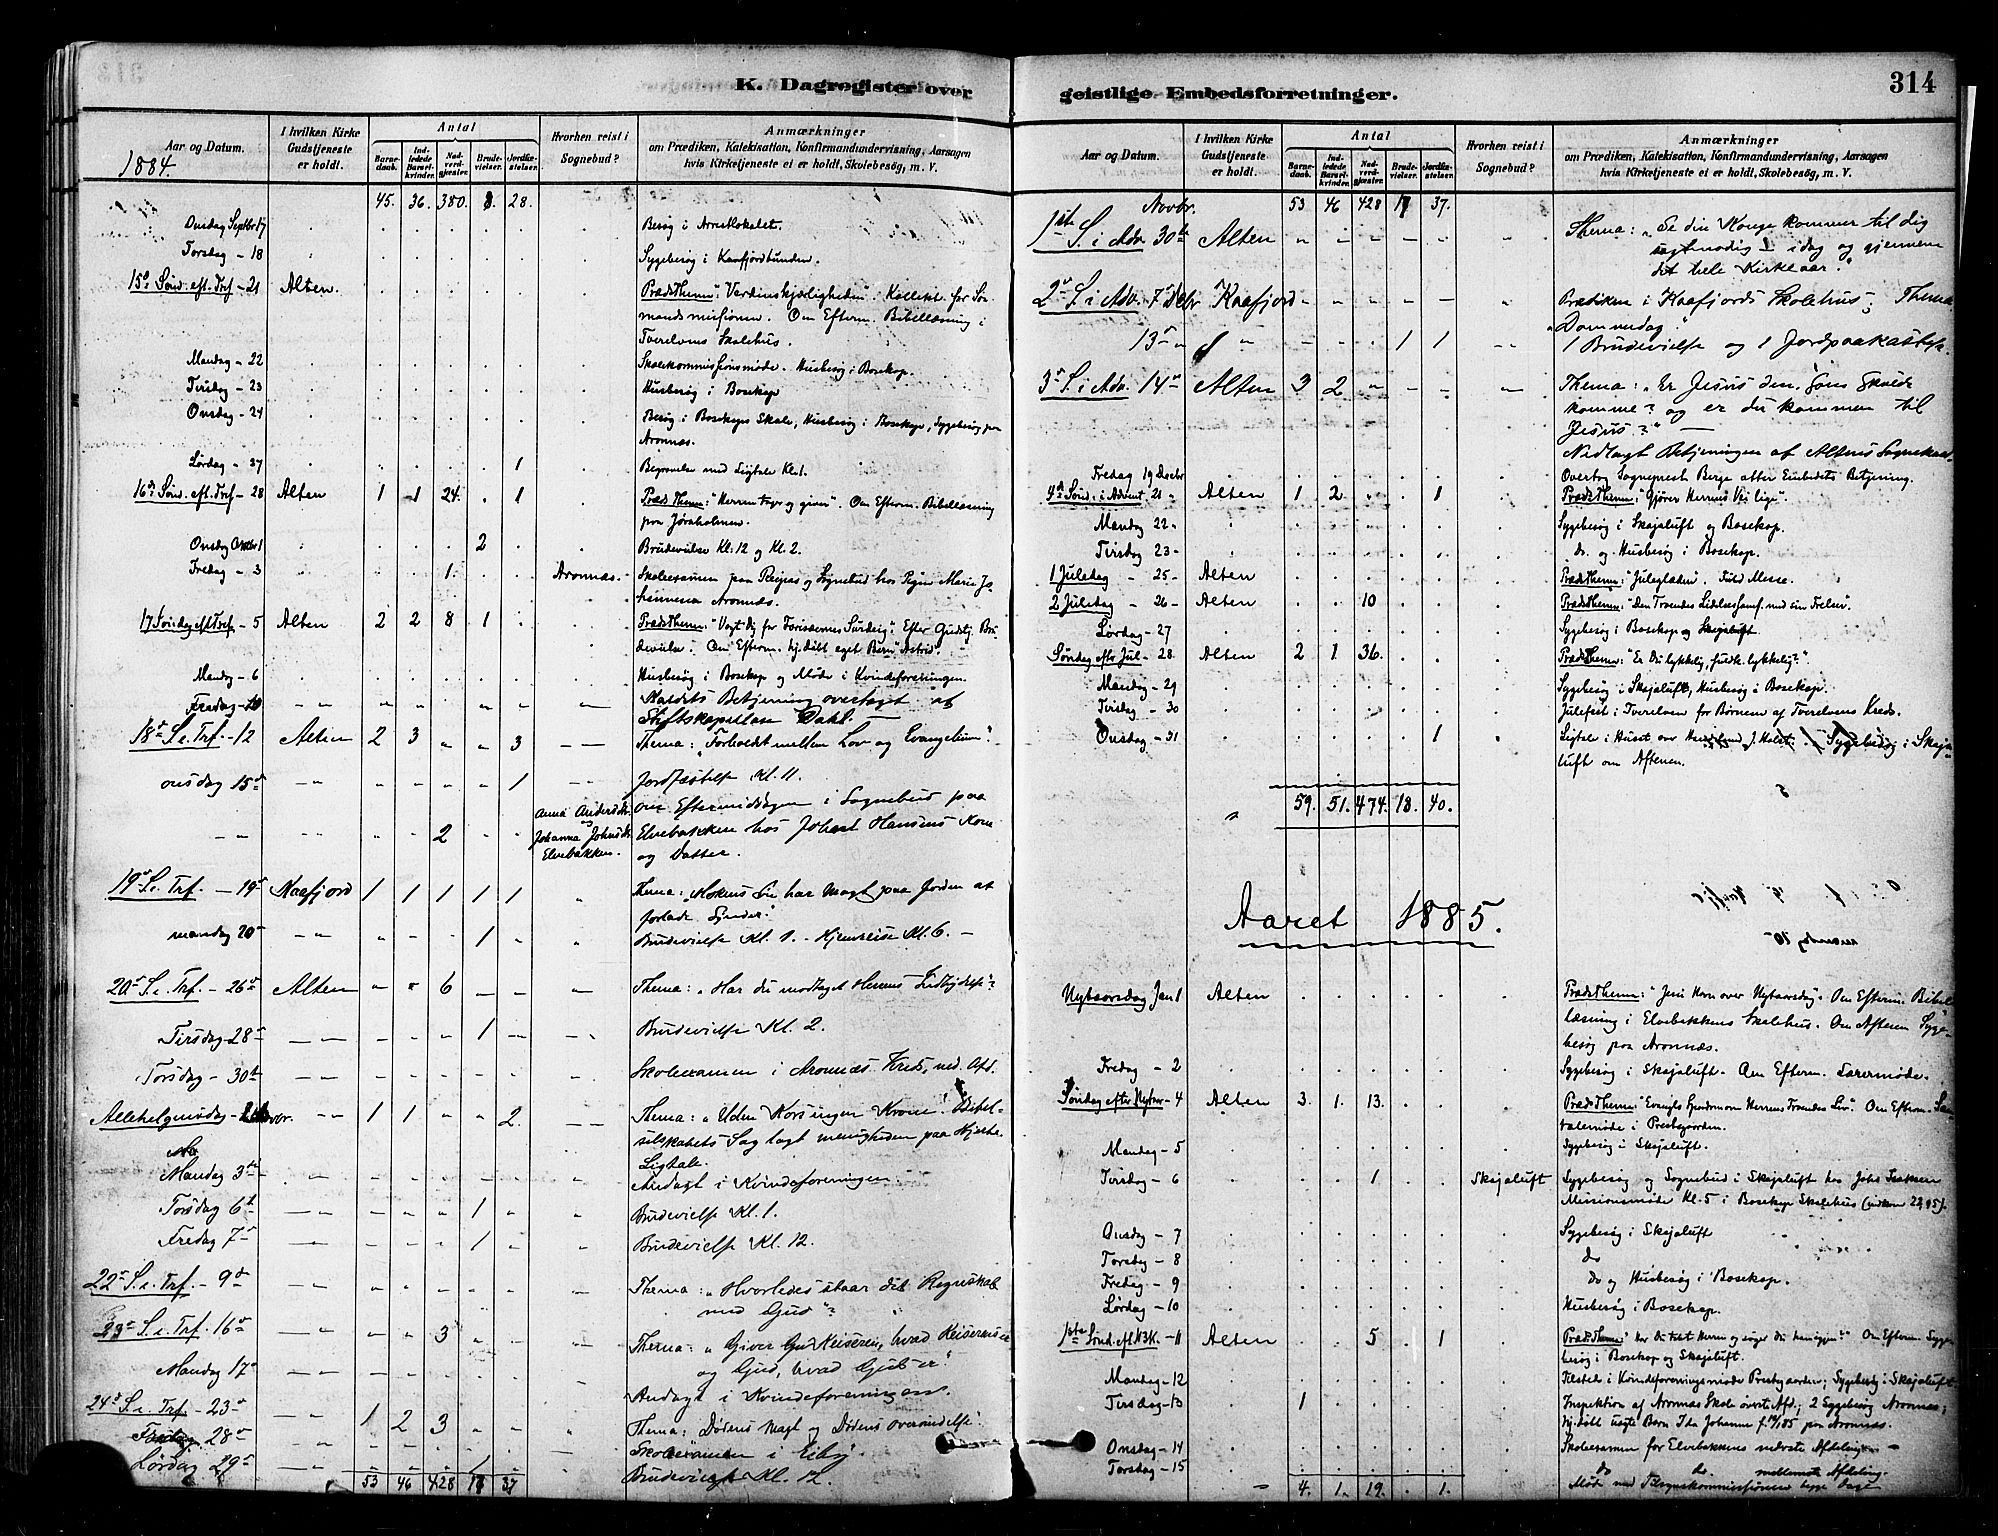 K. Dagregister over
Aar og Datum.
1884.
I hvilken Kirke Gudstjeneste er holdt.
Antal
Barnedaab.
Indledede Barselkvinder.
Nadverdgjæster.
Brudevielser.
Jordfæstelser.
Hvorhen reist i Sognebud?
Anmærkninger
om Prædiken, Katekisation, Konfirmandundervisning, Aarsagen
hvis Kirketjeneste ei er holdt, Skolebesøg, m. V.
45. 36. 380. 28.
Onsdag Septbr 17 Besøg i Arrestlokalet.
Torsdag - 18 Sygebesøg i Kaafjordbunden.
15de Sønd. eft. Tref - 21 Alten. Præd. Thema: "Verdenskjærligheden". Kollekt for Sø-
mandsmissionen. Om Efterm. Bibellæsning i
Tverelvens Skolehus.
Mandag - 22 Skolekommissionsmøde. Husbesøg i Bosekop.
Tirsdag - 23 Husbesøg i Bosekop
Onsdag - 24 Besøg i Bosekops Skole, Husbesøg i Bosekop, Sygebesøg paa
Aronnæs.
Lørdag - 27 1 Begravelse med Ligtale Kl. 1.
16de Sønd. eft. Tref - 28 Alten 1 1 24. 1 Præd. Thema: "Herren tager og giver". Om Efterm. Bibellæsning
paa Jøraholmen.
Onsdag Oktbr 1 2 Brudevielse Kl. 12 og Kl. 2.
Fredag - 3 1. Aronnæs. Skoleexamen paa Reipas og Sognebud hos Pigen Marie Jo-
hannesa Aronnæs.
17 Søndag eft Tref - 5 Alten 2 2 8 1 Præd. Thema: "Vogt Dig for Farisæernes Surdeig". Efter Gudstj. Bru-
devielse. Om Efterm. hj.døbt eget Barn "Astrid".
Mandag - 6 Husbesøg i Bosekop og Møde i Kvindeforeningen.
Fredag - 10 Kaldets Betjening overtaget af
Stiftskapellan Dahl. —
18de S. e. Trf. - 12 Alten 2 3 " " 3 Thema: "Forholdet mellem Lov og Evangelium".
onsdag 15de 1 Jordfæstelse Kl. 11.
2 Anna Andersdtr. og Johanna Johnsdtr. Elvebakken. om Eftermiddagen i Sognebud paa
Elvebakken hos Johan Hansens Kone
og Datter.
19de S. e. Trf. - 19de Kaafjord 1 1 1 1 1 Thema: "Menneskens Søn har Magt paa Jorden at
forlade Synder."
mandag 20de 1 Brudevielse Kl. 1. - Hjemreise Kl. 6. -
20de S. e. Trf. - 26de Alten " " 6 Thema: "Har du modtaget Herrens Indbydelse"?
Tirsdag - 28de 1 Brudevielse Kl. 2.
Torsdag - 30te Skoleexamen i Aronnæs Kreds, ned. Afd.
Allehelgensdag 1 1 " " 2. Thema: "Uden Korsingen Krone". Bibel-
selskabets Sag lagt menigheden paa Hjerte.
Ligtale.
Mandag 3die Andagt i Kvindeforeningen.
Torsdag 6te 1 Brudevielse Kl. 1.
Fredag 7de 1 Brudevielse Kl. 12.
22de S. e. Trf. - 9de Thema: "Hvorledes staar dit Regnskab
med Gud"?
23de S. e. Trf. 16de 3 Thema: "Giver Keiseren, hvad Keiserens er
og Gud, hvad Guds er".
Mandag 17de Andagt i Kvindeforeningen.
24de S. e. Trf. - 23de 1 2 3 Thema: Dødens Magt og Dødens overvindelse.
28de Skoleexamen i Eiby
Lørdag 29de 1 Brudevielse Kl. 12.
53 46 428 37
geistlige Embedsforretninger.
314
Aar og Datum.
I hvilken Kirke Gudstjeneste er holdt.
Antal
Barnedaab.
Indledede Barselkvinder.
Nadverdgjæster.
Brudevielser.
Jordfæstelser.
Hvorhen reist i Sognebud?
Anmærkninger
om Prædiken, Katekisation, Konfirmandundervisning, Aarsagen
hvis Kirketjeneste ei er holdt, Skolebesøg, m. V.
Novbr. 53 46 428 17 37.
1ste S. i Adv. 30te Alten Thema: "Se din Konge kommer til dig
sagtmodig idag og gjennem
det hele Kirkeaar."
2den S. i Adv. 7de Decbr Kaafjord Prædiken i Kaafjords Skolehus; Thema
"Dommedag".
13de " " 1 1 1 Brudevielse og 1 Jordpaakastelse.
3die S. i Adv. 14de Alten 3 2 Thema: "Er Jesus den, som skulde
komme? og er du kommen til
Jesus?" —
Nedlagt Betjeningen af Altens Sognekald.
Fredag 19 Decbr Overtog Sognepræst Berge atter Embedets Betjening.
4de Sønd. i Advent 21 Alten 1 2 1 Præd. Thema: "Gjører Herrens Vei lige".
Mandag 22 Sygebesøg i Skajaluft og Bosekop.
Tirsdag 23 do. og Husbesøg i Bosekop.
1 Juledag - 25 Alten Præd. Thema: "Juleglæden". Fuld Messe.
2 Juledag - 26 Alten 10 Præd. Thema: "Den Troendes Lidelsessamf. med sin Frelser".
Lørdag - 27 Sygebesøg i Bosekop og Skajaluft
Søndag eftr Jul - 28 Alten 2 1 36. Præd. Thema: "Er Du lykkelig, fuldk. lykkelig?"
Mandag - 29 Sygebesøg i Skajaluft, Husbesøg i Bosekop.
Tirsdag - 30 Julefest i Tverelven for Børnene af Tverelvens Kreds.
Onsdag - 31 1 Ligtale i Huset over J. Holst. Sygebesøg i Skaja-
luft om Aftenen.
59. 51. 474. 18. 40.
Aaret 1885.
Nytaarsdag Jan 1 Alten Præd. Thema: "Jesu Navn over Nytaarsdag". Om Efterm. Bibel-
læsning i Elvebakkens Skolehus. Om Aftenen Syge-
besøg paa Aronnæs.
Fredag - 2 Sygebesøg i Skajaluft. Om Efterm. Lærermøde.
Søndag efter Nytaar - 4 Alten 3. 1. 13. Præd. Thema: Om Efterm. Sam-
talemøde i Prestegaarden.
Mandag - 5 Sygebesøg i Skajaluft.
Tirsdag - 6 1 Skajaluft Sygebesøg og Sognebud i Skajaluft hos Johs Isaksen
Missionsmøde Kl. 5 i Bosekop Skolehus
Onsdag - 7 Sygebesøg i Skajaluft
Torsdag - 8 do
Fredag - 9 do og Husbesøg i Bosekop.
Lørdag - 10 Husbesøg i Bosekop.
1ste Sønd. eft. H3K. - 11 Alten 5 1 Præd. Thema: Om Efterm. Syge-
besøg i Bosekop og Skajaluft.
Mandag - 12 Tilsted i Kvindeforeningsmøde Prestegaarden; Sygebesøg i Skajaluft
Tirsdag - 13 1 Inspektion af Aronnæs Skole øverste Afd.; 2 Sygebesøg Aronnæs;
hj.døbt uægte Barn Ida Johanne paa Aronnæs.
Onsdag - 14 Skoleexamen for Elvebakkens nederste Afdeling.
Torsdag - 15 do do mellemste Afdeling.
4. 1. 19. 1. Møde med Tilsynskommissionen begge Dage